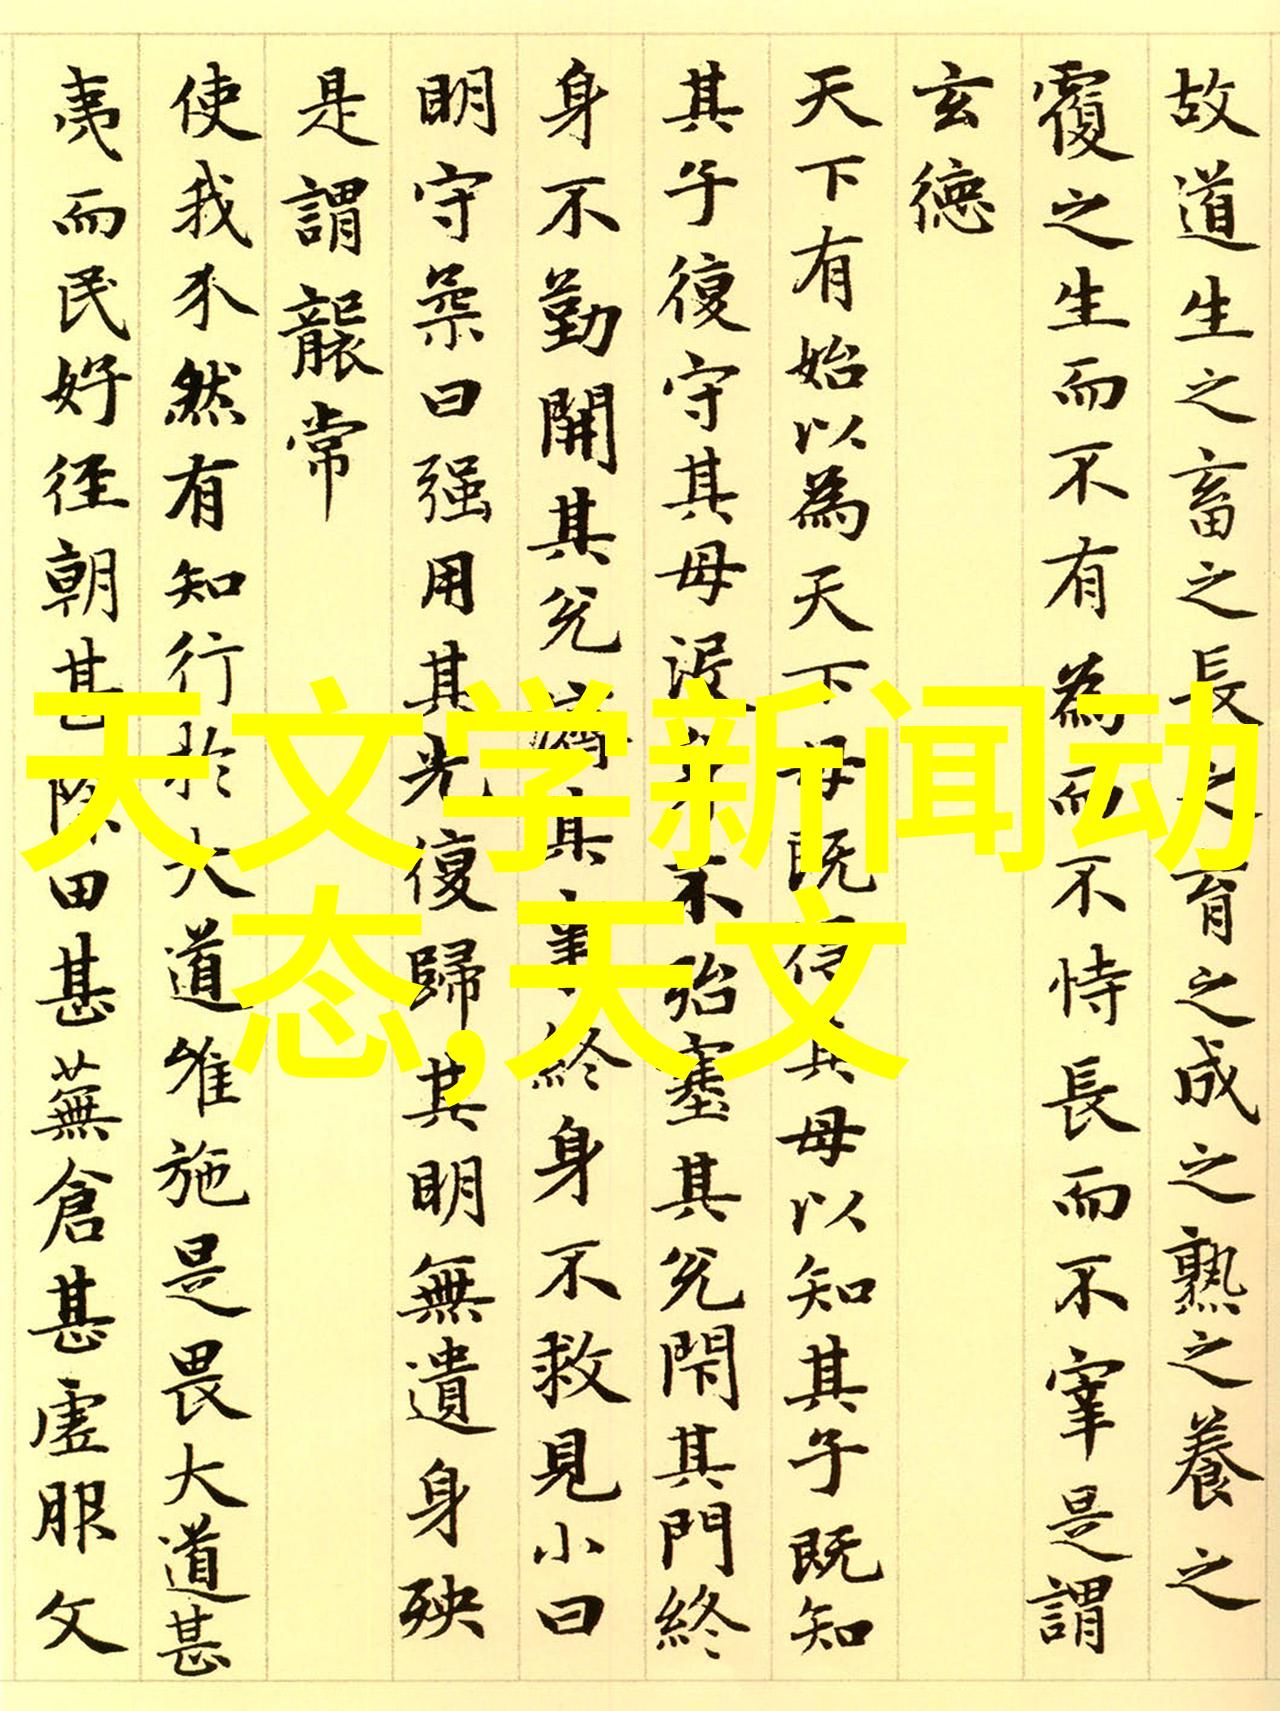 故道生之畜之長之育之成之熟之養之
覆之生而不有為而不恃長而不宰是謂
玄德
天下有始以為天下母既得其母以知其子既知
其子復守其母没身不殆塞其兌閇其門終
身不勤開其兌濟其事終身不救見小曰
明守柔曰强用其光復歸其明無遺身殃
是謂襲常
使我介然有知行於大道唯施是畏大道甚
夷而民好徑朝甚除田甚蕪倉甚虛服文
天文学新闻动
态,天文